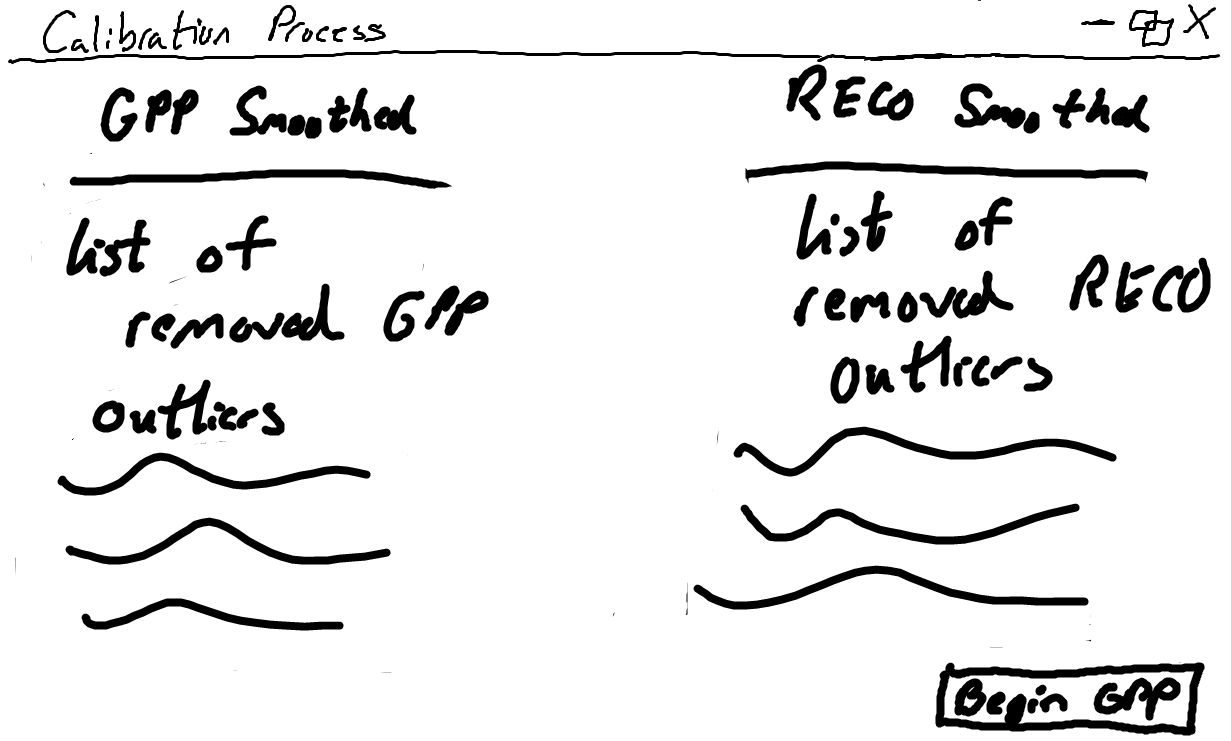 Calibration Process
GPP Smoothed
List of
removed GPP
outliers
RECO Smoothed
List of
removed RECO
outliers
Begin GPP